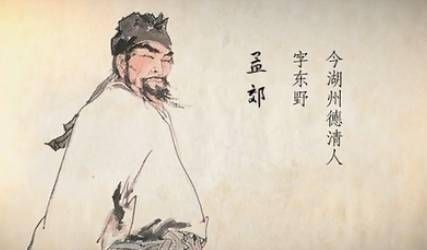 今湖州德清人
字东野
孟郊